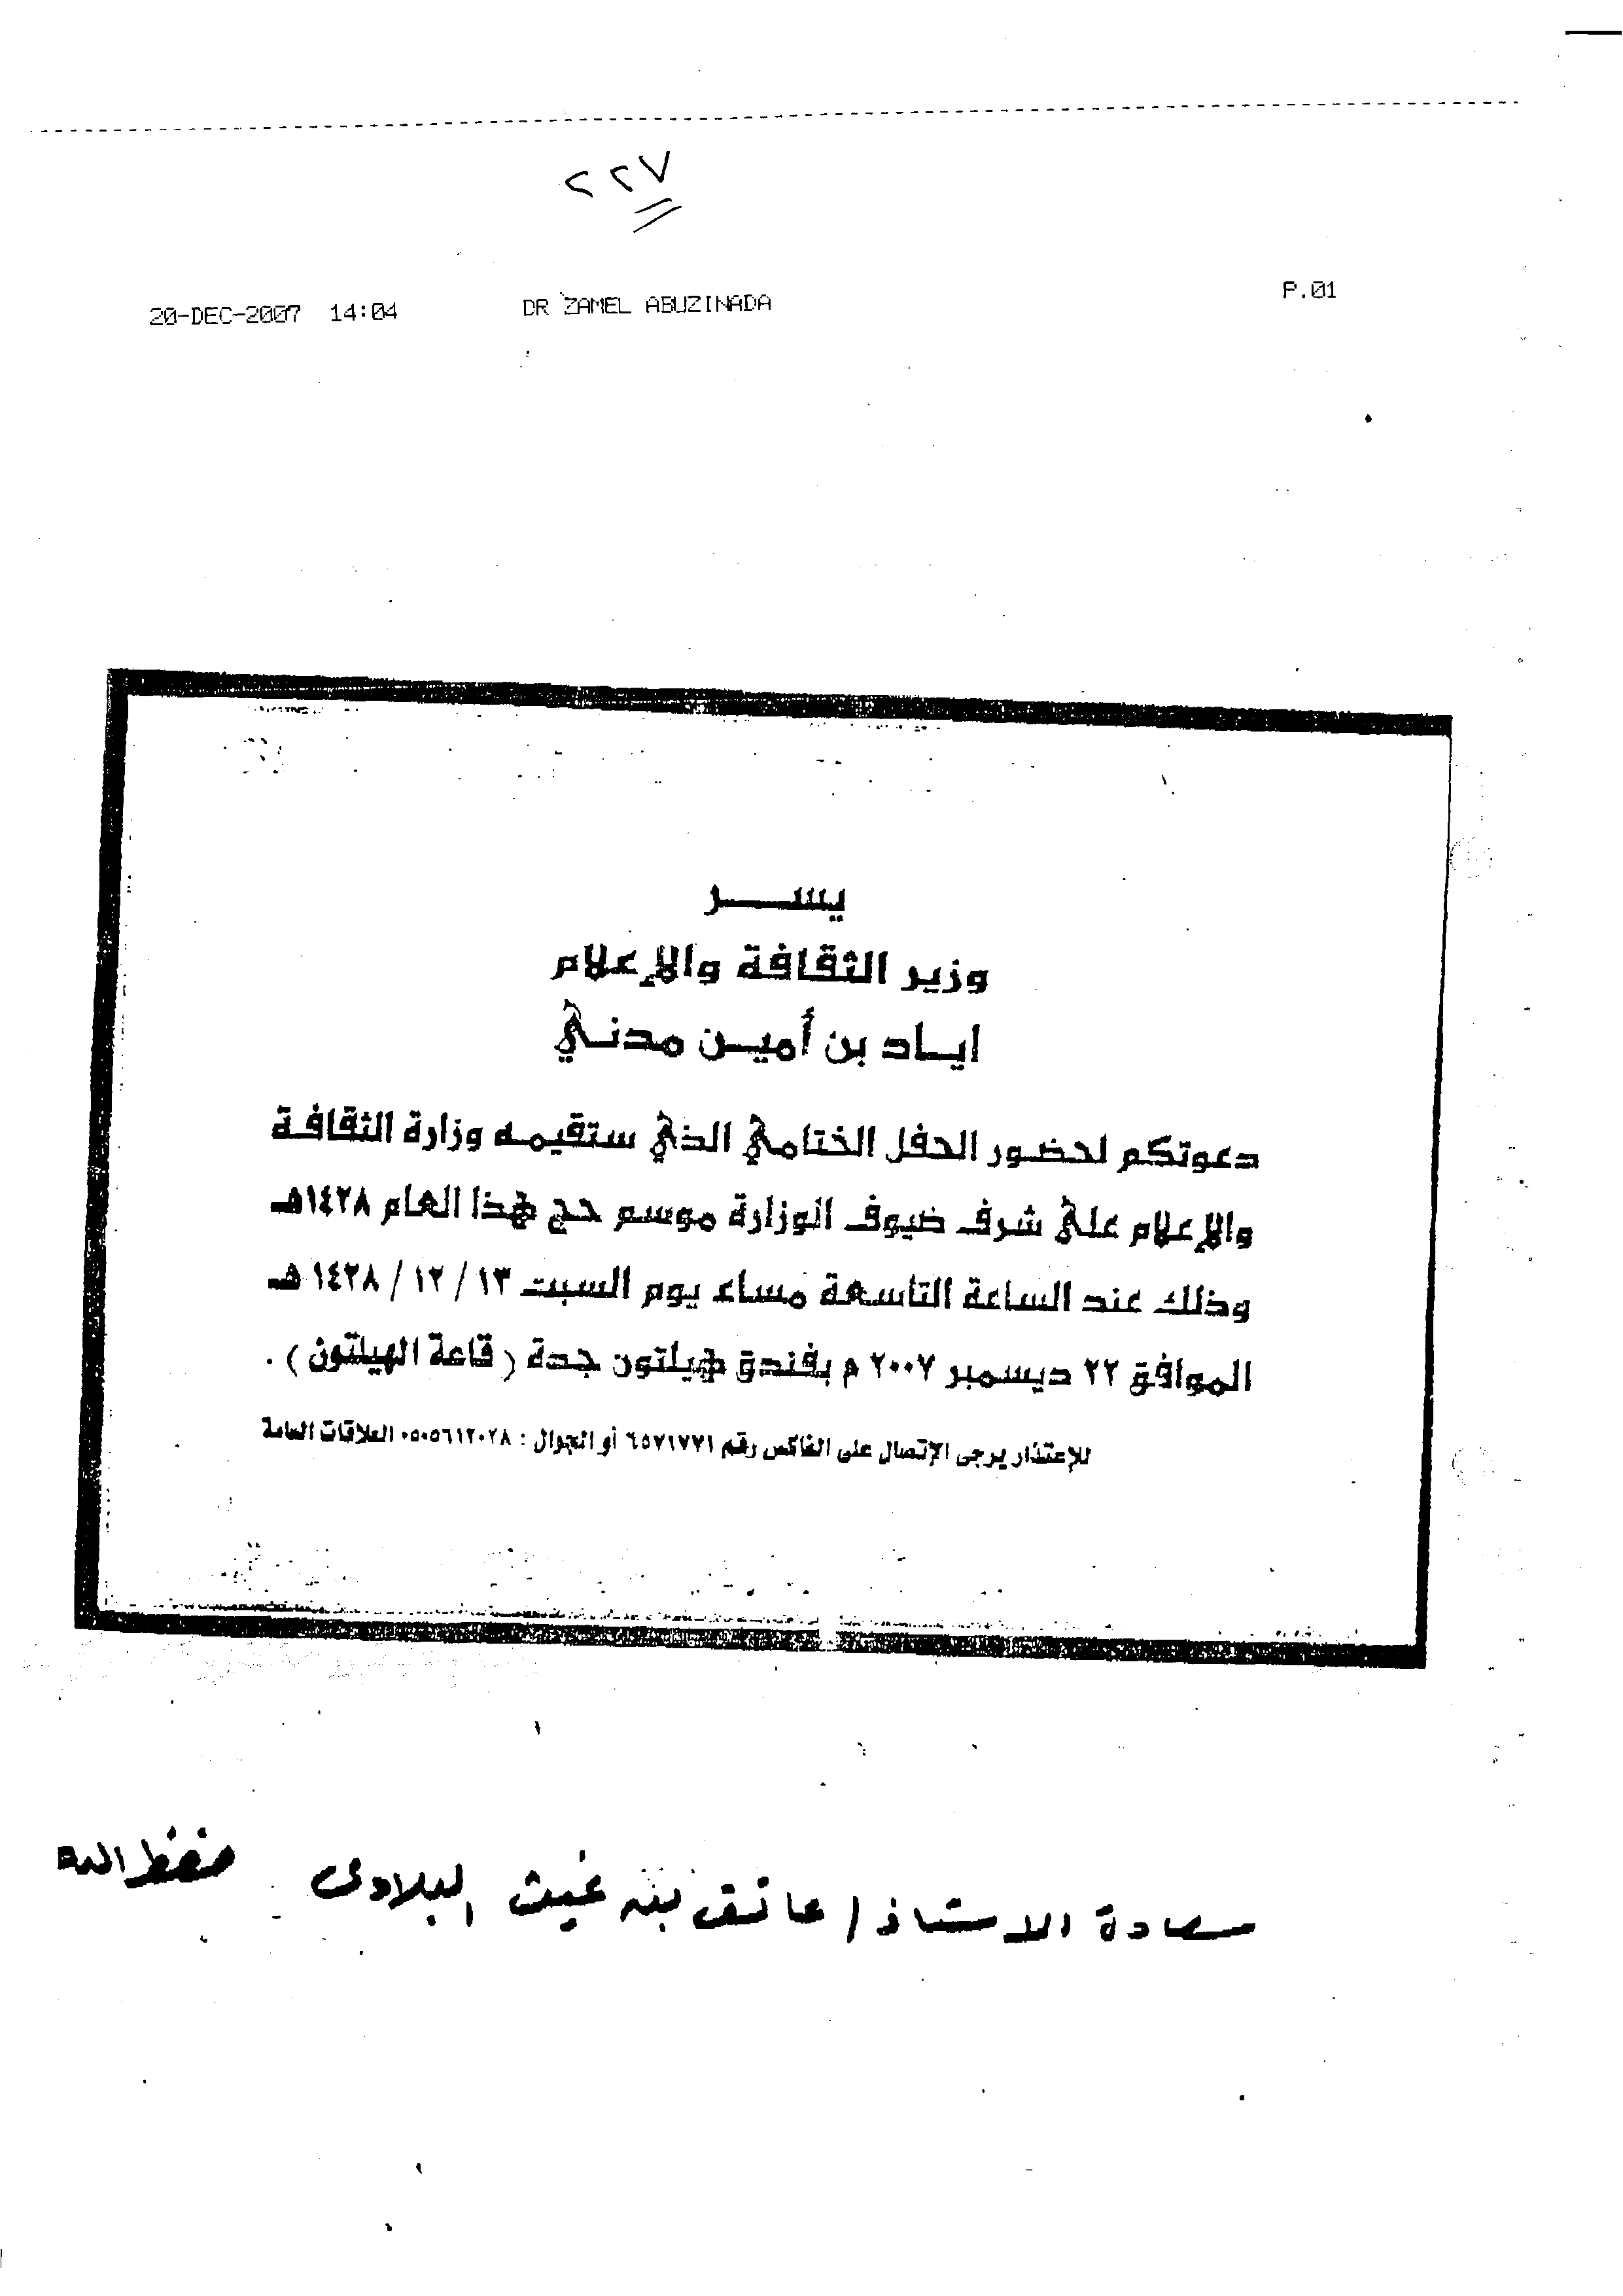 ٢٢٧
20-DEC-2007 14:04 DR ZAMEL ABUZINADA P.01
يسر
وزير الثقافة والإعلام
اياد بن أمين مدني
دعوتكم لحضور الحفل الختامي الذي ستقيمه وزارة الثقافة
والإعلام على شرف ضيوف الوزارة موسم حج هذا العام ١٤٢٨هـ
وذلك عند الساعة التاسعة مساء يوم السبت ١٣ / ١٢ / ١٤٢٨ هـ
الموافق ٢٢ ديسمبر ٢٠٠٧ م بفندق هيلتون جدة ( قاعة الهيلتون ) .
للإعتذار يرجى الإتصال على الفاكس رقم ٦٥٧١٧٧١ أو الجوال : ٠٥٠٥٦١٢٠٢٨ العلاقات العامة
سعادة الاستاذ / عاتق بن غيث البلادي حفظه الله